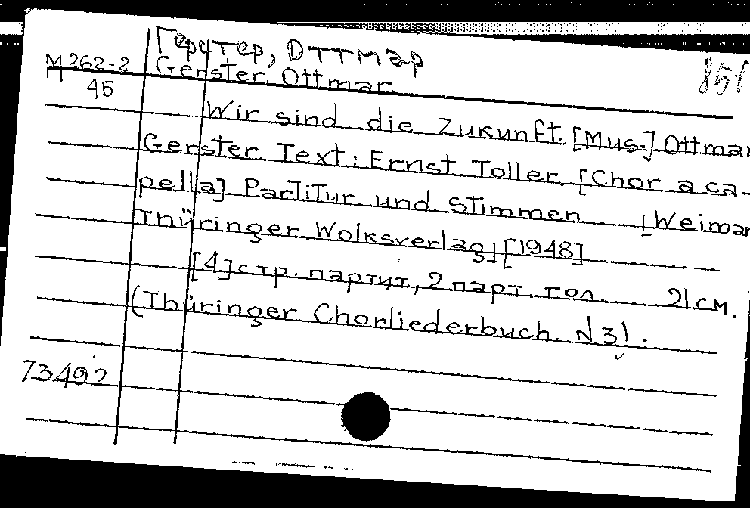 Герутер, Оттмар
М 262-2
45
851
Gerster Ottmar
Wir sind die Zukunft. [Mus.] Ottmar
Gerster. Text: Ernst Toller. [Chor a ca-
pella] Partitur und Stimmen [Weimar
Thüringer Wolksverlag] [1948]
[4] стр. партит, 2 парт. гол. 21 см.
(Thüringer Chorliederbuch. N 3).
73492